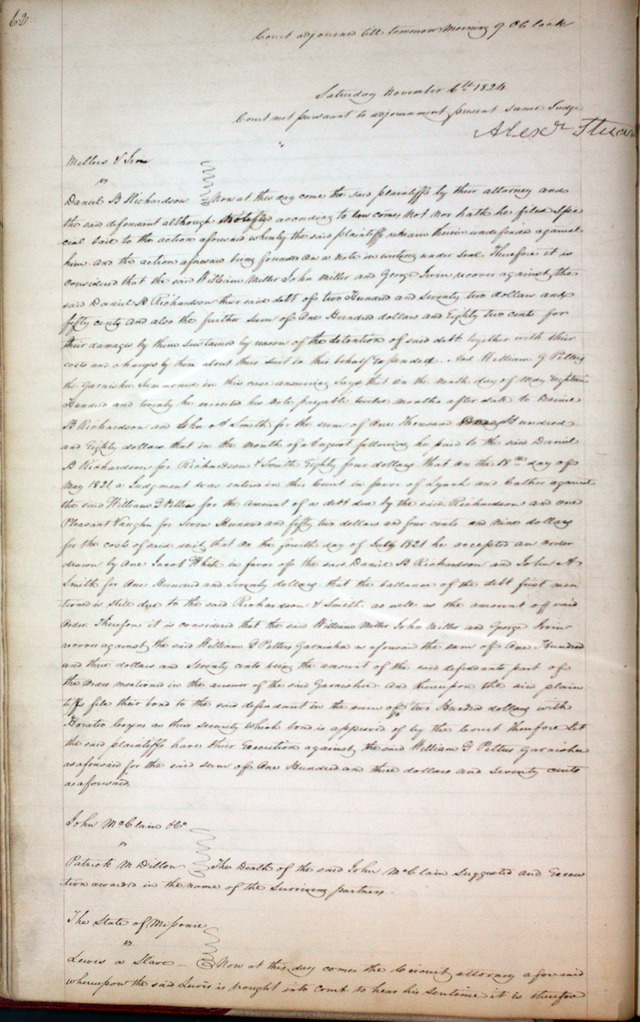 62
Court adjourned till tomorrow Morning 9 O Clock
Saturday November 6th 1824
Court met pursuant to adjournment present same Judge
Alexr Stuart
Millers & Irvin
vs
Daniel B Richardson Now at this day come the said plaintiffs by their attorney and
the said defendant although according to law comes not nor hath he filed Spe
cial bail to the action aforesaid whereby the said plaintiffs remain therein undefended against
him and the action aforesaid being founded on a note in writing under seal Therefore it is
considered that the said William Miller John Miller and George Irvin recover against the
said Daniel B Richardson their said debt of two Hundred and Seventy two dollars and
fifty cents and also the further sum of One Hundred dollars and Eighty two cents for
their damages by them sustained by reason of the detention of said debt together with their
costs and charges by them about their suit in this behalf Expended. And William G Pettus
the Garnishee Summoned in this case answering Says that on the day of May Eighteen
Hundred and twenty he executed his note payable twelve months after date to Daniel
B Richardson and John A Smith for the sum of One thousand Hundred
and Eighty dollars that in the month of August following he paid to the said Daniel
B Richardson for Richardson & Smith Eighty four dollars that on the 18th day of
May 1821 a Judgment was entered in this Court in favor of Lynch and against
the said William G Pettus for the amount of a debt due by the said Richardson and one
Pleasant Vaughn for Seven Hundred and fifty two dollars and four cents and nine dollars
for the costs of said suit, that on the fourth day of July 1821 he accepted an order
drawn by One Jacob in favor of the said Daniel B Richardson and John A
Smith for One Hundred and Seventy dollars that the ballance of the debt first men
tioned is still due to the said Richardson & Smith as well as the amount of said
order. Therefore it is considered that the said William Miller John Miller and George Irvin
recover against the said William G Pettus Garnishee as aforesaid the sum of One Hundred
and three dollars and Seventy cents being the amount of the said defendants part of
the order mentioned in the answer of the said Garnishee And thereupon the said plain
tiff file their bond to the said defendant in the sum of two Hundred dollars with
Horatio Cozens as their security which bond is approved of by the court therefore let
the said plaintiffs have their Execution against the said William G Pettus Garnishee
as aforesaid for the said sum of One Hundred and three dollars and seventy cents
as aforesaid.
John McClain & Co
vs
Patrick M Dillon The Death of the said John McClain Suggested and Execu
tion awarded in the name of the Surviving partners
The State of Missouri
vs
Lewis a Slave Now at this day comes the Circuit attorney aforesaid
whereupon the said Lewis is brought into court to hear his sentence it is therefore